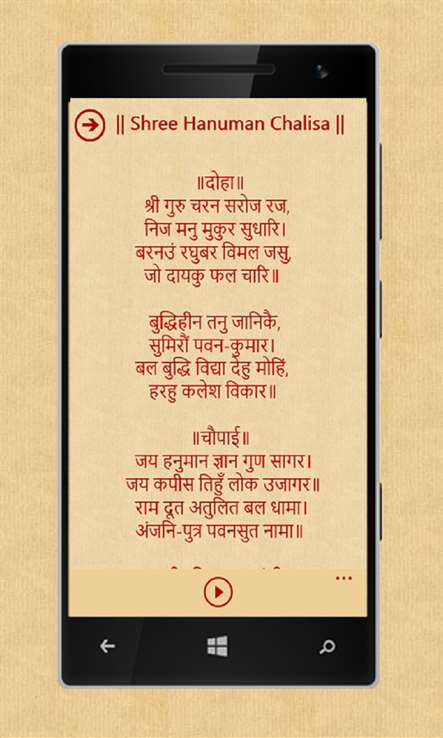 || Shree Hanuman Chalisa ||
॥दोहा॥
श्री गुरु चरन सरोज रज,
निज मनु मुकुर सुधारि।
बरनउं रघुबर विमल जसु,
जो दायकु फल चारि॥
बुद्धिहीन तनु जानिकै,
सुमिरौं पवन-कुमार।
बल बुद्धि विद्या देहु मोहिं,
हरहु कलेश विकार॥
॥चौपाई॥
जय हनुमान ज्ञान गुण सागर।
जय कपीस तिहुँ लोक उजागर॥
राम दूत अतुलित बल धामा।
अंजनि-पुत्र पवनसुत नामा॥